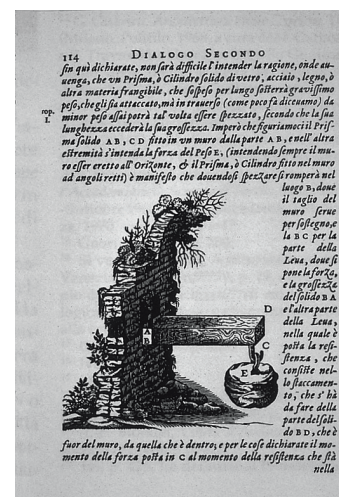 114 DIALOGO SECONDO
ſin quì dichiarate, non ſarà difficile l'intender la ragione, onde au-
uenga, che vn Priſma, ò Cilindro ſolido di vetro, acciaio, legno, ò
altra materia frangibile, che ſoſpeſo per lungo ſoſterrà grauiſſimo
peſo, che gli ſia attaccato, mà in trauerſo (come poco fà diceuamo) da
rop.
I.
minor peſo aſſai potrà tal volta eſſere ſpezzato, ſecondo che la ſua
lunghezza eccederà la ſua groſſezza. Imperò che figuriamoci il Priſ-
ma ſolido AB, CD fitto in vn muro dalla parte AB, e nell'altra
eſtremità s'intenda la forza del Peſo E, (intendendo ſempre il mu-
ro eſſer eretto all'Orizonte, & il Priſma, ò Cilindro fitto nel muro
ad angoli retti) è manifeſto che douendoſi ſpezzare ſi romperà nel
luogo B, doue
il taglio del
muro ſerue
per ſoſtegno, e
la BC per la
parte della
Leua, doue ſi
pone la forza,
e la groſſezza
del ſolido BA
è l'altra parte
della Leua,
nella quale è
poſta la reſi-
ſtenza, che
conſiſte nel-
lo ſtaccamen-
to, che s'hà
da fare della
parte del ſoli-
do BD, che è
A
B
D
C
E
fuor del muro, da quella che è dentro; e per le coſe dichiarate il mo-
mento della forza poſta in C al momento della reſiſtenza che ſtà
nella